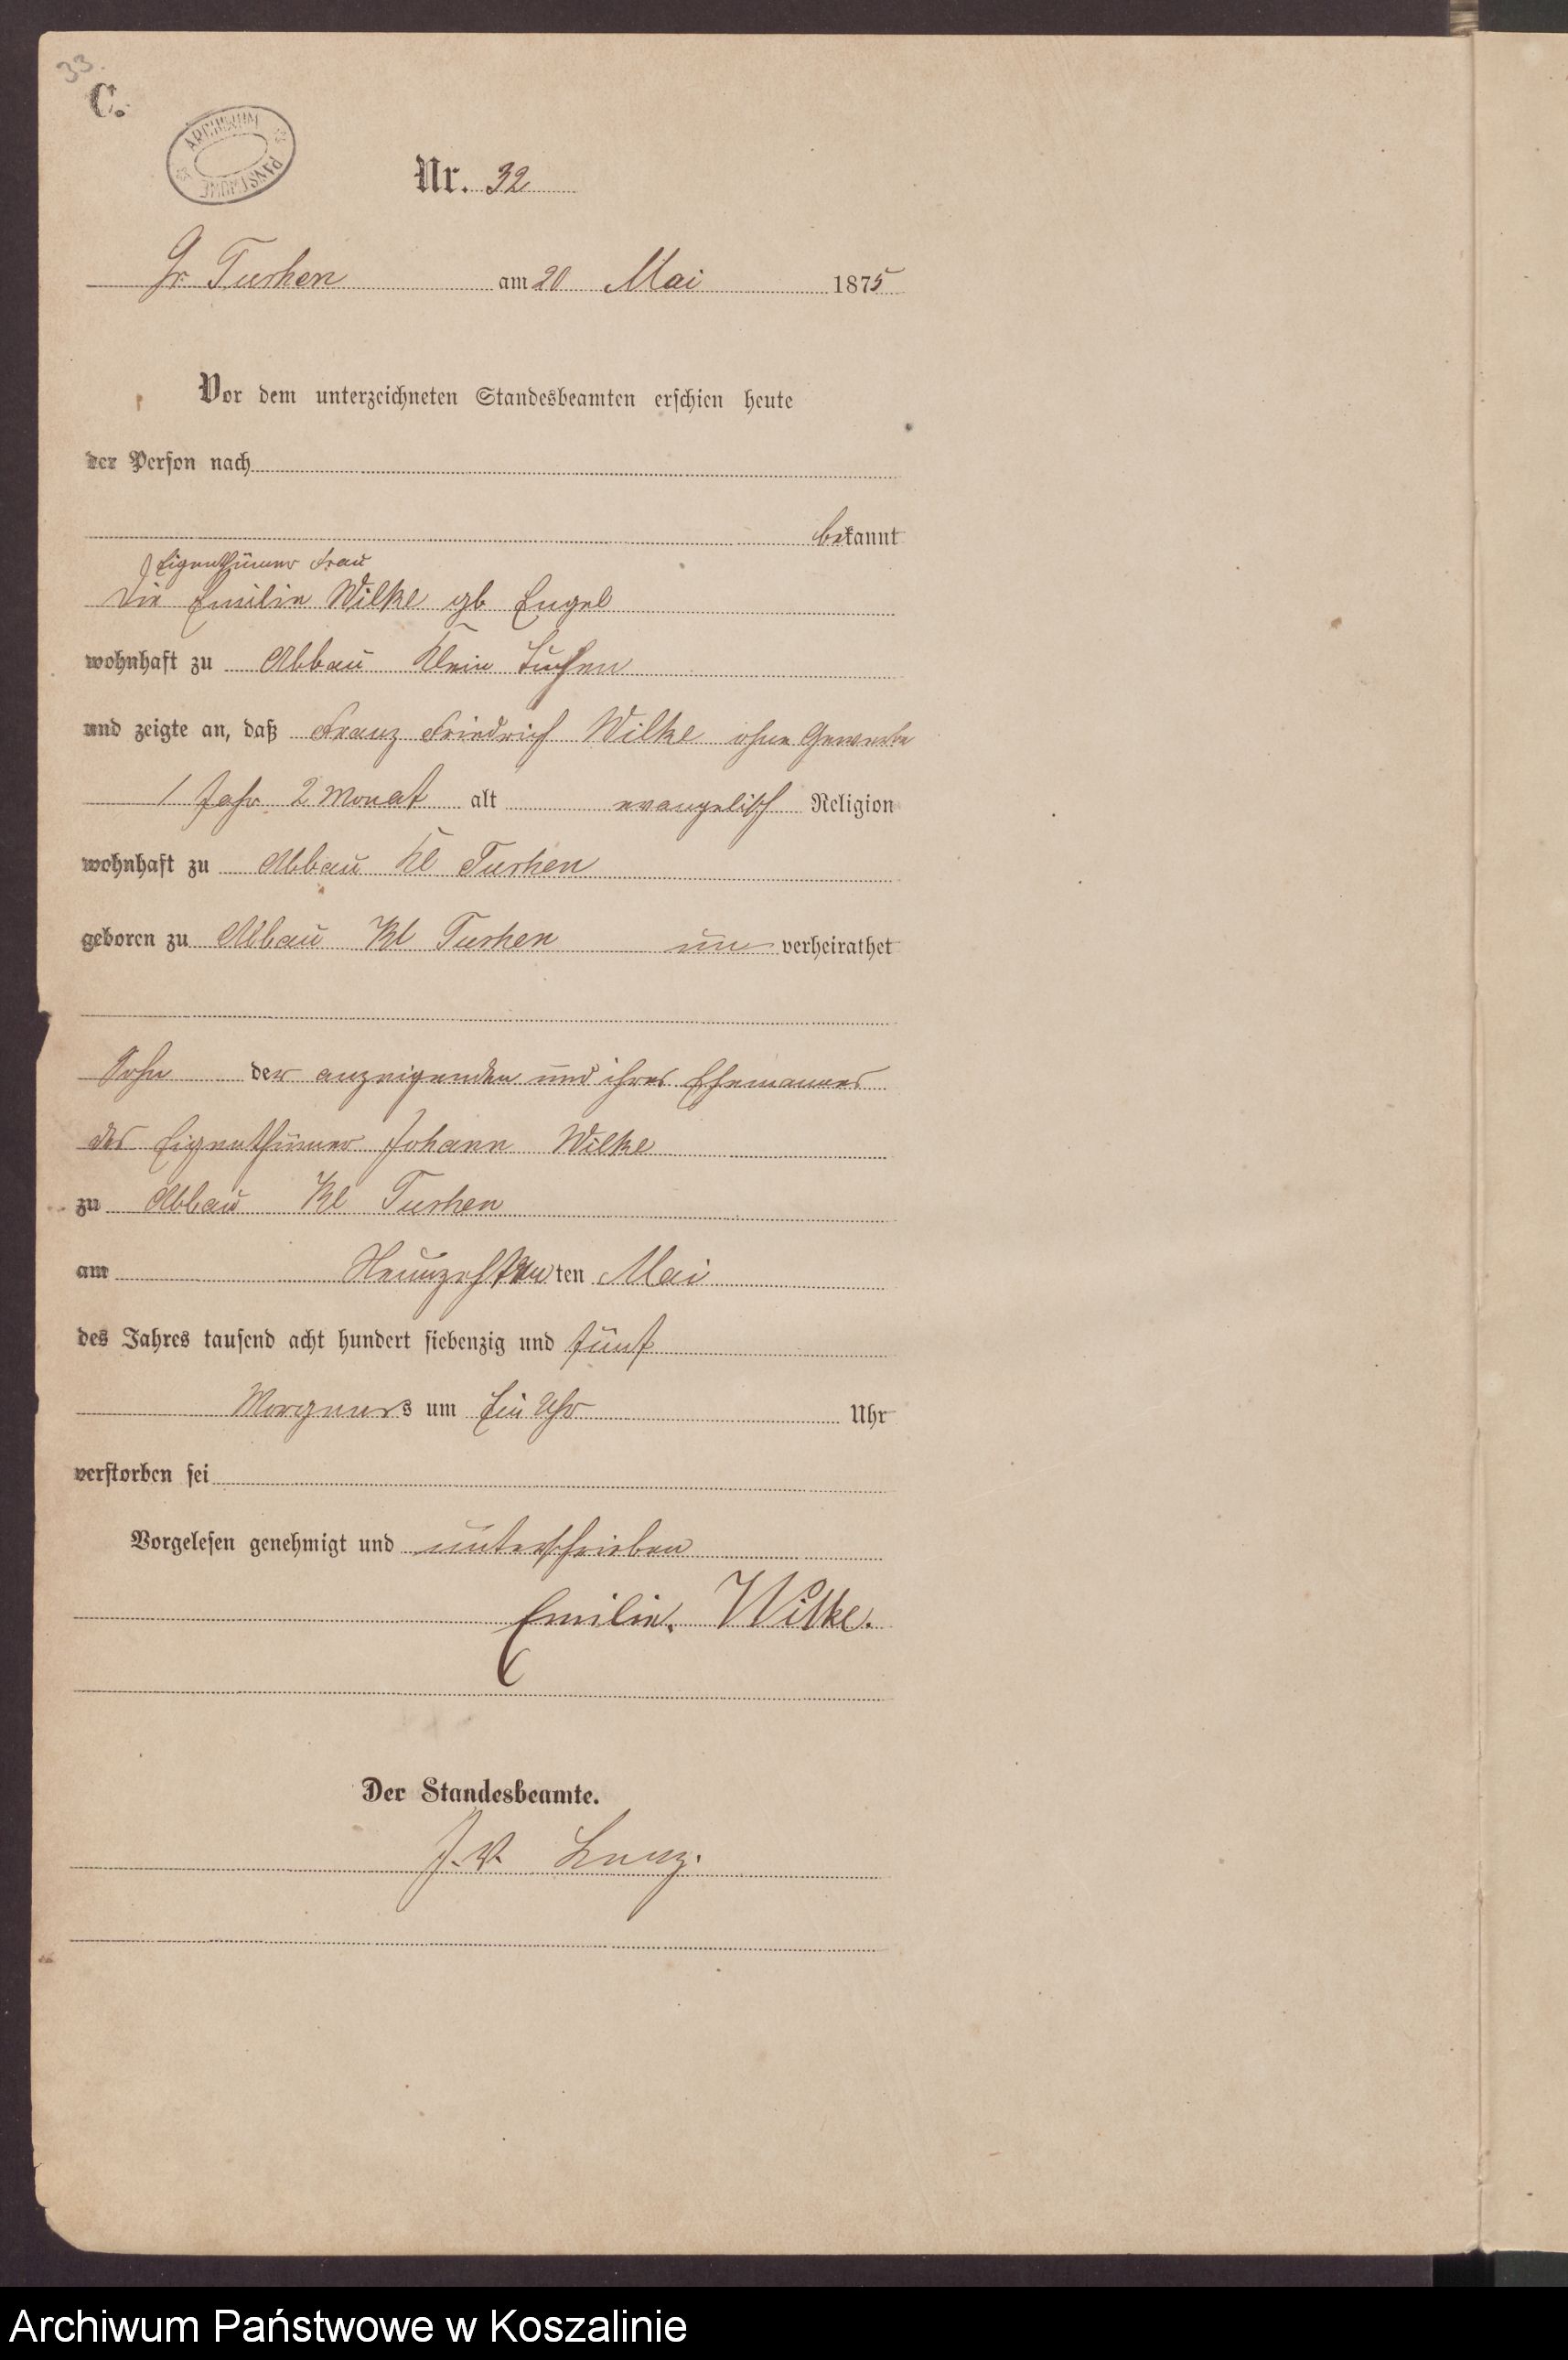 33.
C.
ARCHIWUM PAŃSTWOWE
Nr. 32
Gr Tuchen am 20 Mai 1875
Vor dem unterzeichneten Standesbeamten erschien heute
der Person nach
bekannt
Eigenthümer Frau
Die Emilie Wilke gb Engel
wohnhaft zu Abbau Klein Tuchen
und zeigte an, daß Franz Friedrich Wilke ohne Gewerbe
1 Jahr 2 Monat alt evangelisch Religion
wohnhaft zu Abbau Kl Tuchen
geboren zu Abbau Kl Tuchen un verheirathet
Sohn der anzeigenden und ihres Ehemannes
des Eigenthümer Johann Wilke
zu Abbau Kl Tuchen
am Neunzehnten ten Mai
des Jahres tausend acht hundert siebenzig und fünf
Morgens um Ein Uhr Uhr
verstorben sei
Vorgelesen genehmigt und unterschrieben
Emilie. Wilke.
Der Standesbeamte.
J. V. Lenz.
Archiwum Państwowe w Koszalinie